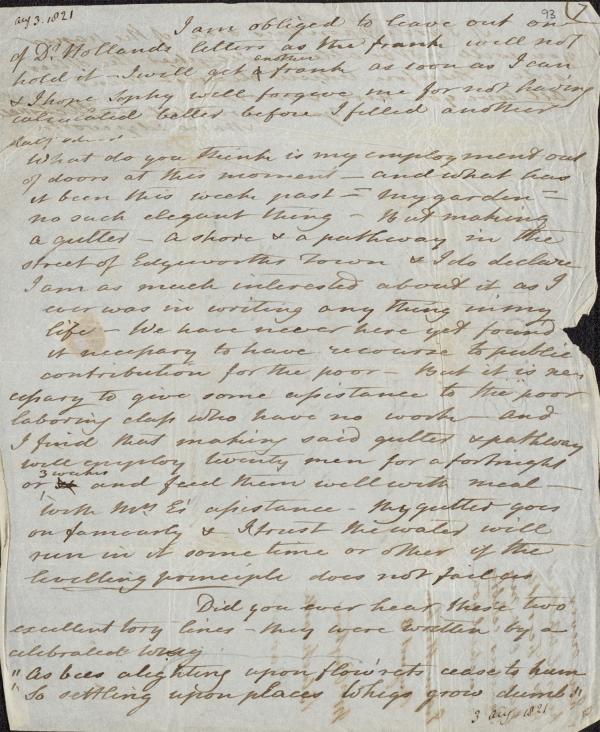 aug 3. 1821
93
7
I am obliged to leave out on
of Dr. Hollands letters as the frank will not
another
hold it - I will get a frank as soon as I can
& I hope Sophy will forgive me for not having
calculated better before I filled another
half
What do you think is my employment out
of doors at this moment - and what has
it been this week past - my garden -
no such elegant thing - But making
a gutter - a shore & a pathway in the
street of Edgeworths Town & I do declare
I am as much interested about it as I
ever was in writing any thing in my
life - We have never here yet found
it necessary to have recourse to public
contribution for the poor - But it is nec
essary to give some assistance to the poor
laboring class who have no work - and
I find that making said gutter & pathway
will employ twenty men for a fortnight
3 weeks
or and feed them well with meal -
with Mrs. E's assistance - My gutter goes
on famously & I trust the water will
run in it some time or other if the
levelling principle does not fail us
Did you ever hear these two
excellent tory lines - they were written by a
celebrated Whig
"As bees alighting upon flow'rets cease to hum
"So settling upon places whigs grow dumb"
3 aug 1821